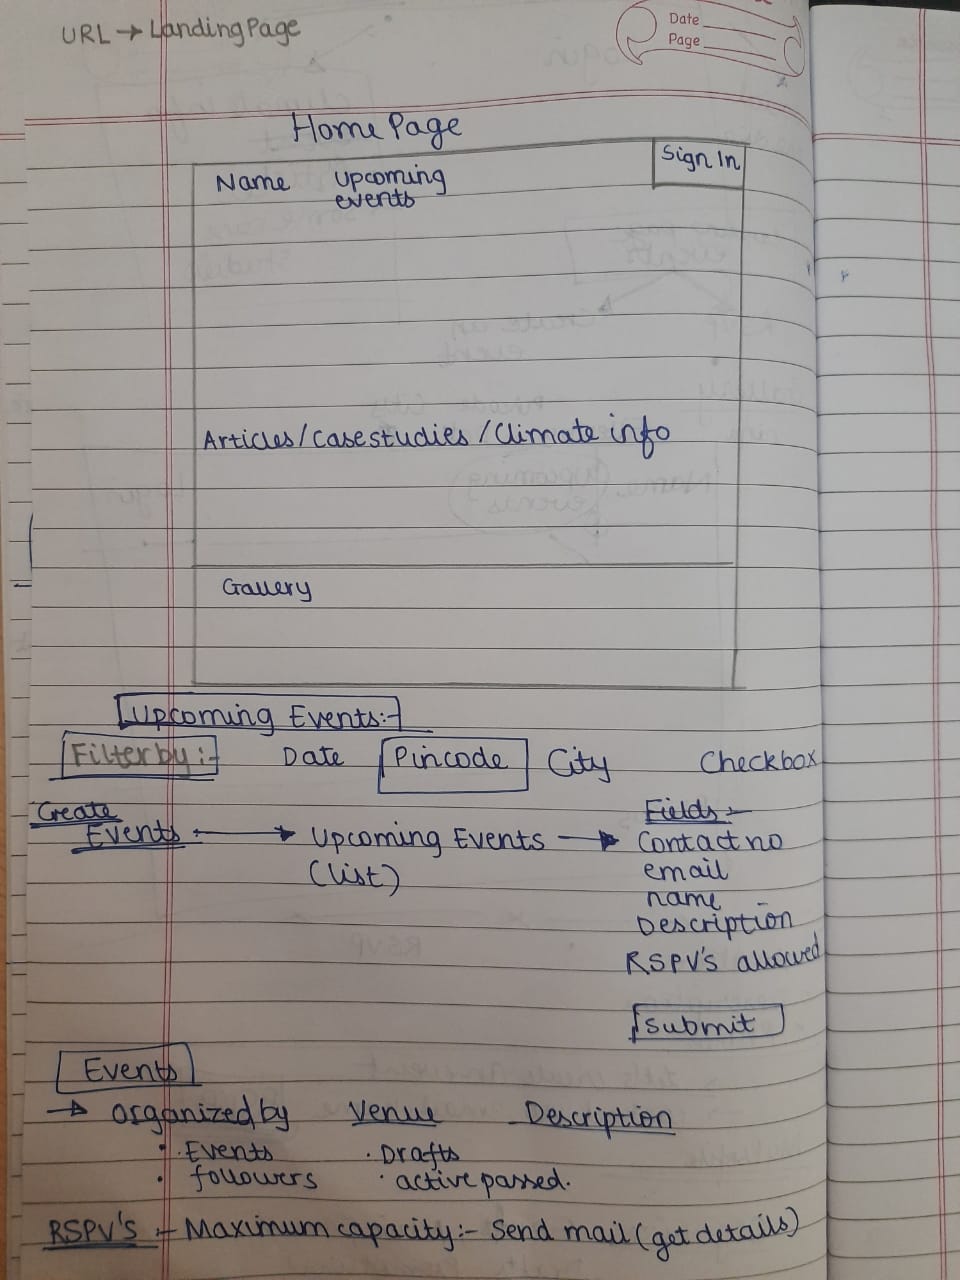 URL → Landing Page
Date
Page
Home Page
Name Upcoming events Sign In
Articles/casestudies/Climate info
Gallery
Upcoming Events:-
Filter by :- Date Pincode City Checkbox
Create Events → Upcoming Events (list) → Fields :-
Contact no
email
name
Description
RSPV's allowed
Submit
Events
→ organized by Venue Description
· Events · Drafts
· followers · active passed.
RSPV's :- Maximum capacity:- Send mail (get details)